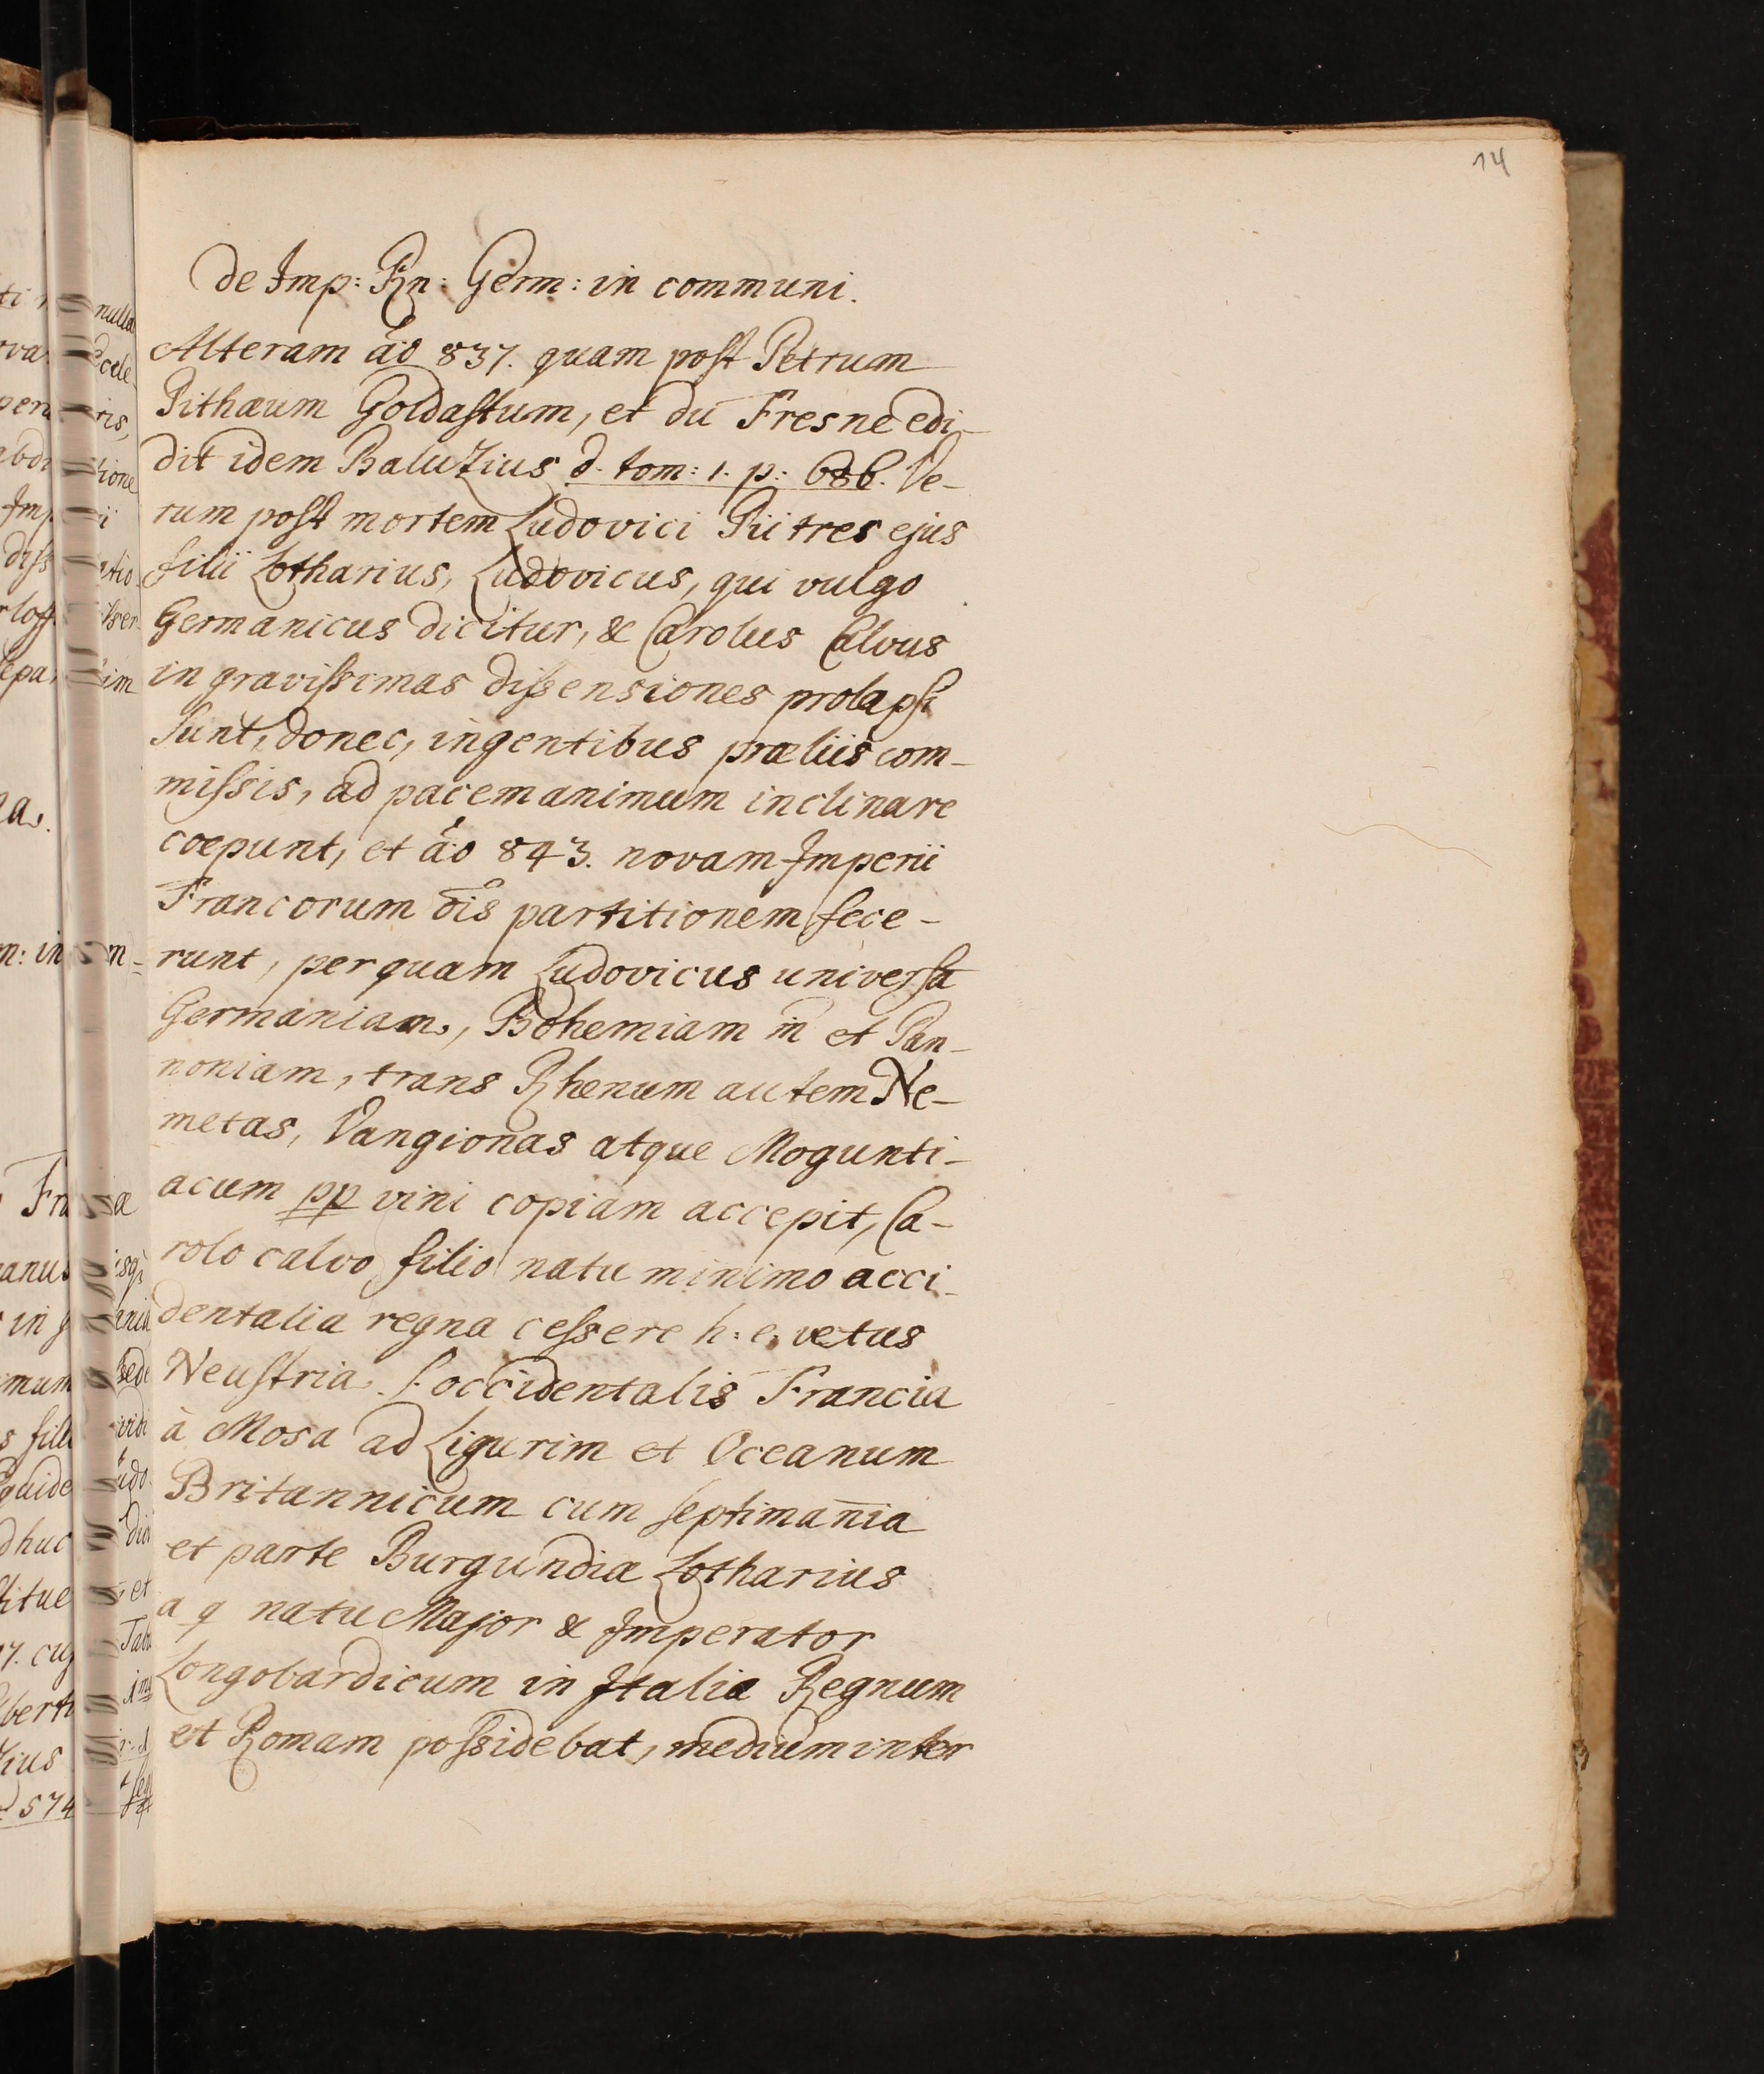 14
de Imp: Rn: Germ: in communi.
Alteram aõ 837. quam post Petrum
Pithæum Goldastum, et du Fresne edi-
dit idem Baluzius d. tom: 1. p: 686. Ve-
rum post mortem Ludovici Pii tres ejus
filii Lotharius, Ludovicus, qui vulgo
Germanicus dicitur, & Carolus Calvus
in gravissimas dissensiones prolapsi
sunt, donec, ingentibus præliis com-
missis, ad pacem animum inclinare
coepunt, et aõ 843. novam Imperii
Francorum ois partitionem fece-
runt, per quam Ludovicus universã
Germaniam, Bohemiam m̃ et Pan-
noniam, trans Rhenum autem Ne-
metas, Vangionas atque Mogunti-
acum pp vini copiam accepit, Ca-
rolo calvo filio natu minimo acci-
dentalia regna cessere h: e. vetus
Neustria s. occidentalis Francia
à Mosa ad Ligurim et Oceanum
Britannicum cum septimania
et parte Burgundiæ Lotharius
a q natu Major & Imperator
Longobardicum in Italia Regnum
et Romam possidebat, medium inter